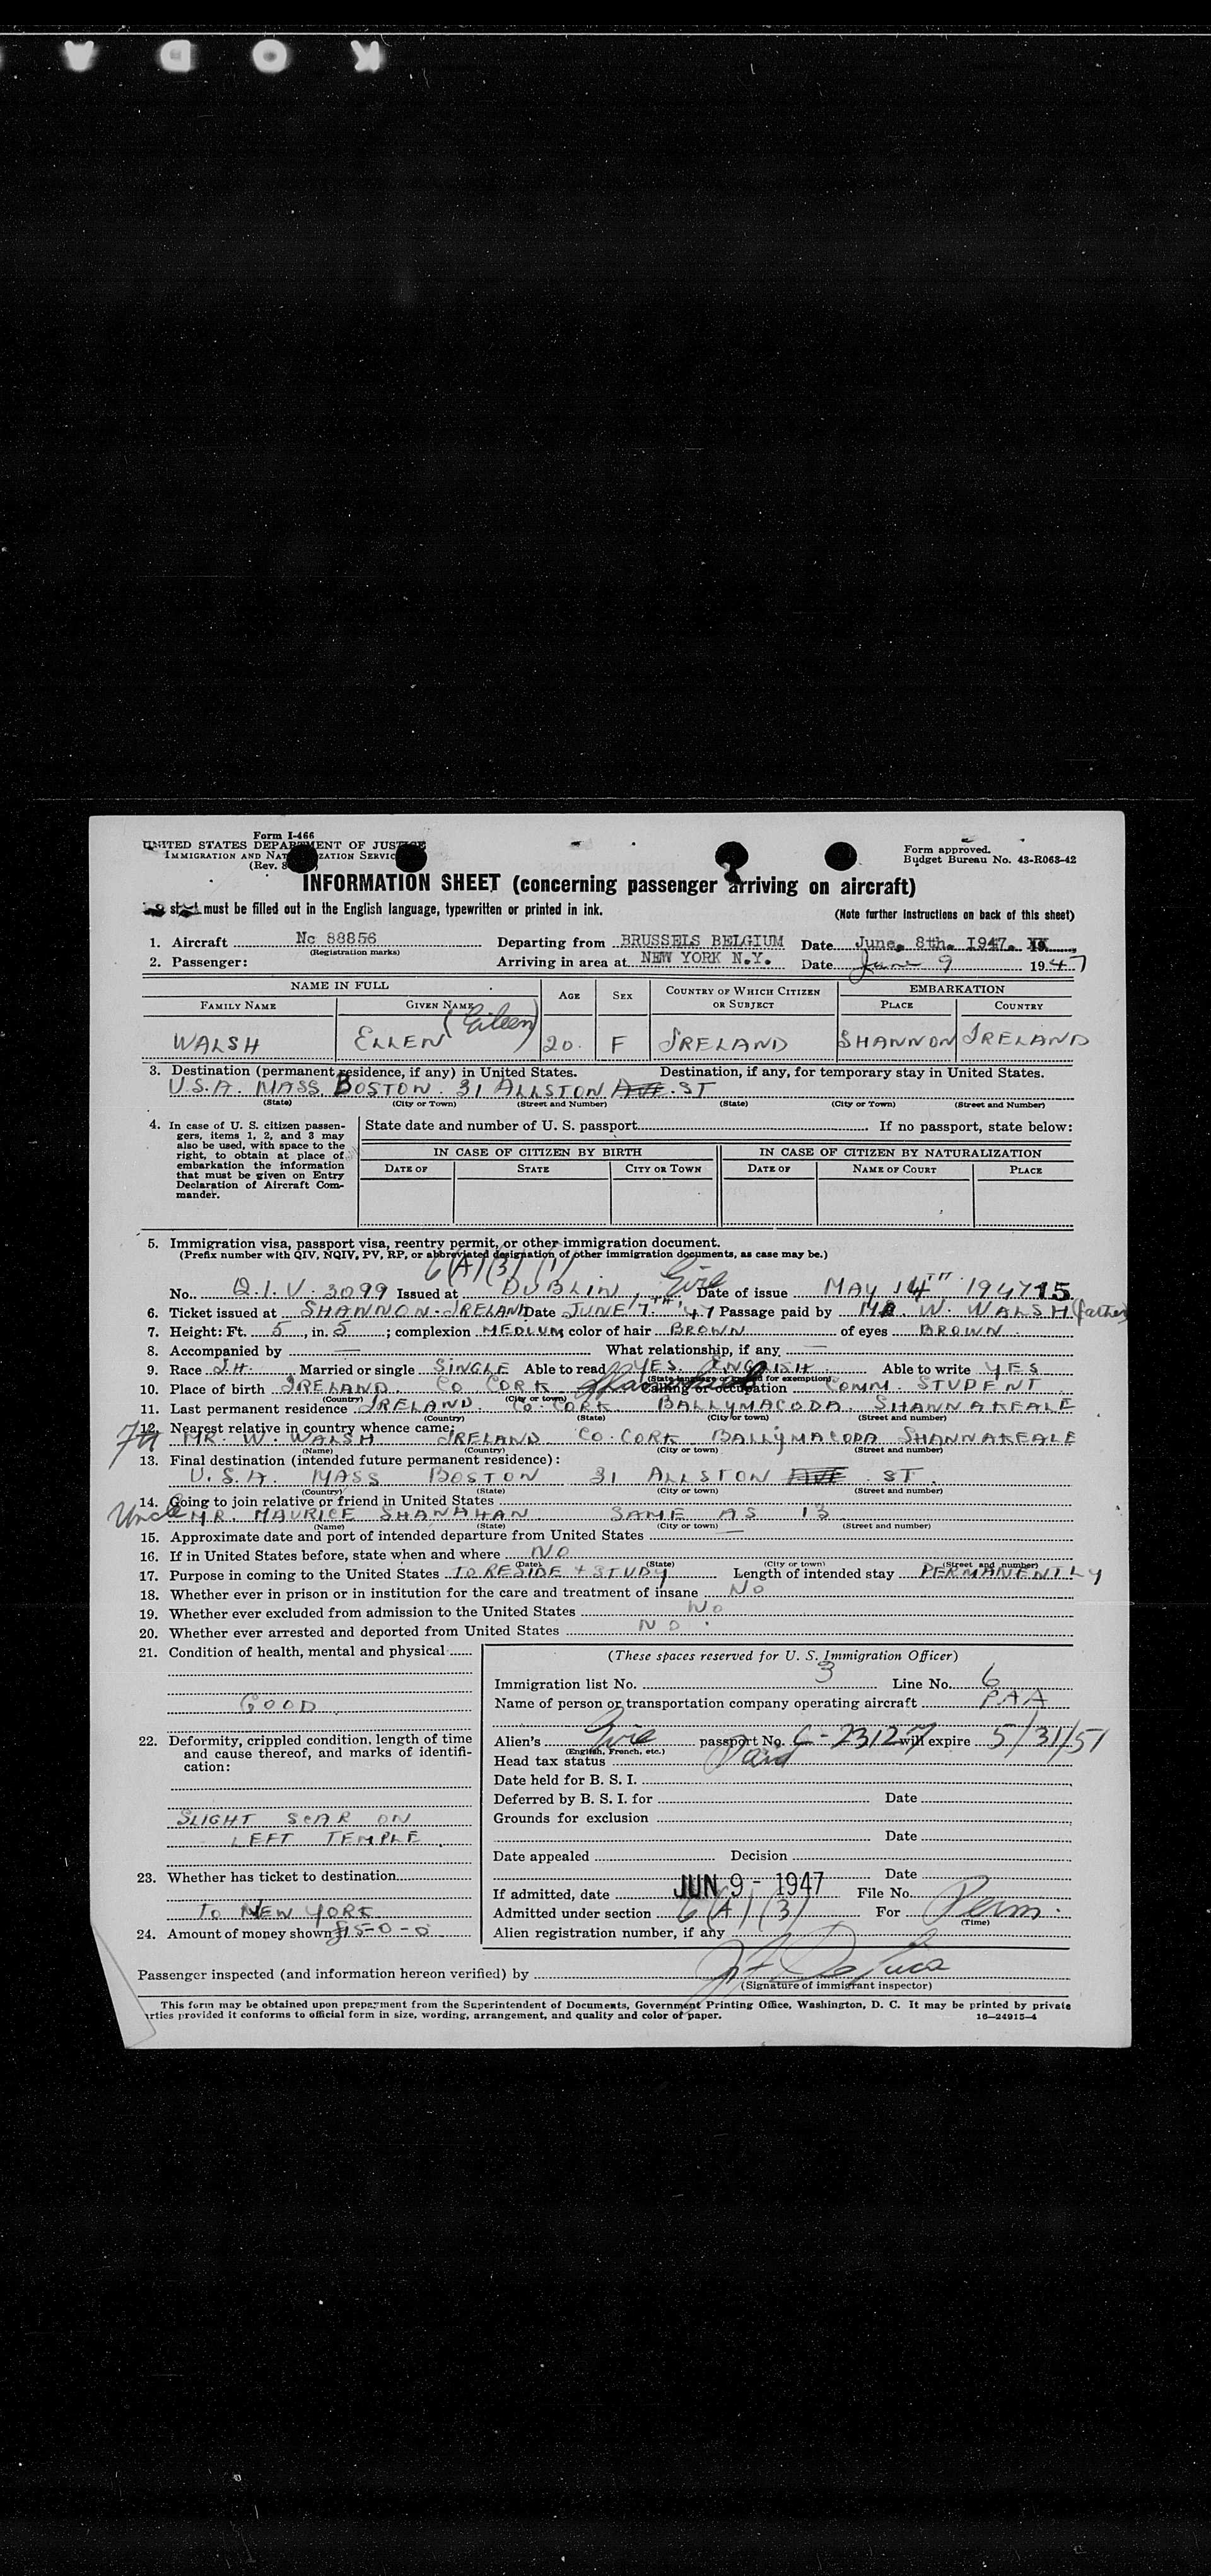 K O D A
Form I-466
UNITED STATES DEPARTMENT OF JUSTICE
IMMIGRATION AND NATURALIZATION SERVICE
(Rev. 8
Form approved.
Budget Bureau No. 43-R063-42
INFORMATION SHEET (concerning passenger arriving on aircraft)
must be filled out in the English language, typewritten or printed in ink.
(Note further instructions on back of this sheet)
1. Aircraft Nc 88856 Departing from BRUSSELS BELGIUM Date June. 8th. I947.
(Registration marks)
2. Passenger: Arriving in area at NEW YORK N.Y. Date June 9 1947
NAME IN FULL AGE SEX COUNTRY OF WHICH CITIZEN OR SUBJECT EMBARKATION
FAMILY NAME GIVEN NAME PLACE COUNTRY
WALSH ELLEN (Eileen) 20. F IRELAND SHANNON IRELAND
3. Destination (permanent residence, if any) in United States. Destination, if any, for temporary stay in United States.
U.S.A. MASS. BOSTON. 31 ALLSTON AVE. ST
(State) (City or Town) (Street and Number) (State) (City or Town) (Street and Number)
4. In case of U. S. citizen passengers, items 1, 2, and 3 may also be used, with space to the right, to obtain at place of embarkation the information that must be given on Entry Declaration of Aircraft Commander.
State date and number of U. S. passport If no passport, state below:
IN CASE OF CITIZEN BY BIRTH IN CASE OF CITIZEN BY NATURALIZATION
DATE OF STATE CITY OR TOWN DATE OF NAME OF COURT PLACE
5. Immigration visa, passport visa, reentry permit, or other immigration document.
(Prefix number with QIV, NQIV, PV, RP, or abbreviated designation of other immigration documents, as case may be.)
6(A)(3) (1)
No. Q.I.V. 3099 Issued at DUBLIN, Eire Date of issue MAY 14TH 1947 15
6. Ticket issued at SHANNON-IRELAND Date JUNE 7TH, 47 Passage paid by MR. W. WALSH (father)
7. Height: Ft. 5, in. 5; complexion MEDIUM, color of hair BROWN of eyes BROWN.
8. Accompanied by — What relationship, if any —
9. Race IH. Married or single SINGLE Able to read YES. ENGLISH. Able to write YES
(State language or ground for exemption)
10. Place of birth IRELAND. CO CORK Calling or occupation COMM. STUDENT
(Country) (City or town)
11. Last permanent residence IRELAND. CO. CORK BALLYMACODA. SHANNAKEALE
(Country) (State) (City or town) (Street and number)
12. Nearest relative in country whence came:
MR. W. WALSH IRELAND CO. CORK BALLYMACODA SHANNAKEALE
(Name) (Country) (City or town) (Street and number)
13. Final destination (intended future permanent residence):
U.S.A. MASS BOSTON 31 ALLSTON AVE ST.
(Country) (State) (City or town) (Street and number)
14. Going to join relative or friend in United States
Uncle MR. MAURICE SHANAHAN SAME AS 13
(Name) (State) (City or town) (Street and number)
15. Approximate date and port of intended departure from United States —
16. If in United States before, state when and where NO
(Date) (State) (City or town) (Street and number)
17. Purpose in coming to the United States TO RESIDE + STUDY Length of intended stay PERMANENTLY
18. Whether ever in prison or in institution for the care and treatment of insane NO
19. Whether ever excluded from admission to the United States NO
20. Whether ever arrested and deported from United States NO.
21. Condition of health, mental and physical
GOOD
22. Deformity, crippled condition, length of time and cause thereof, and marks of identification:
SLIGHT SCAR ON
LEFT TEMPLE.
23. Whether has ticket to destination
TO NEW YORK
24. Amount of money shown £15-0-0
(These spaces reserved for U. S. Immigration Officer)
Immigration list No. 3 Line No. 6
Name of person or transportation company operating aircraft PAA
Alien's Eire passport No. C-23127 will expire 5/31/51
(English, French, etc.)
Head tax status Paid
Date held for B. S. I.
Deferred by B. S. I. for Date
Grounds for exclusion
Date
Date appealed Decision
Date
If admitted, date JUN 9 - 1947 File No.
Admitted under section 6(A)(3) For Perm.
(Time)
Alien registration number, if any
Passenger inspected (and information hereon verified) by
(Signature of immigrant inspector)
This form may be obtained upon prepayment from the Superintendent of Documents, Government Printing Office, Washington, D. C. It may be printed by private
parties provided it conforms to official form in size, wording, arrangement, and quality and color of paper. 16—24915-4